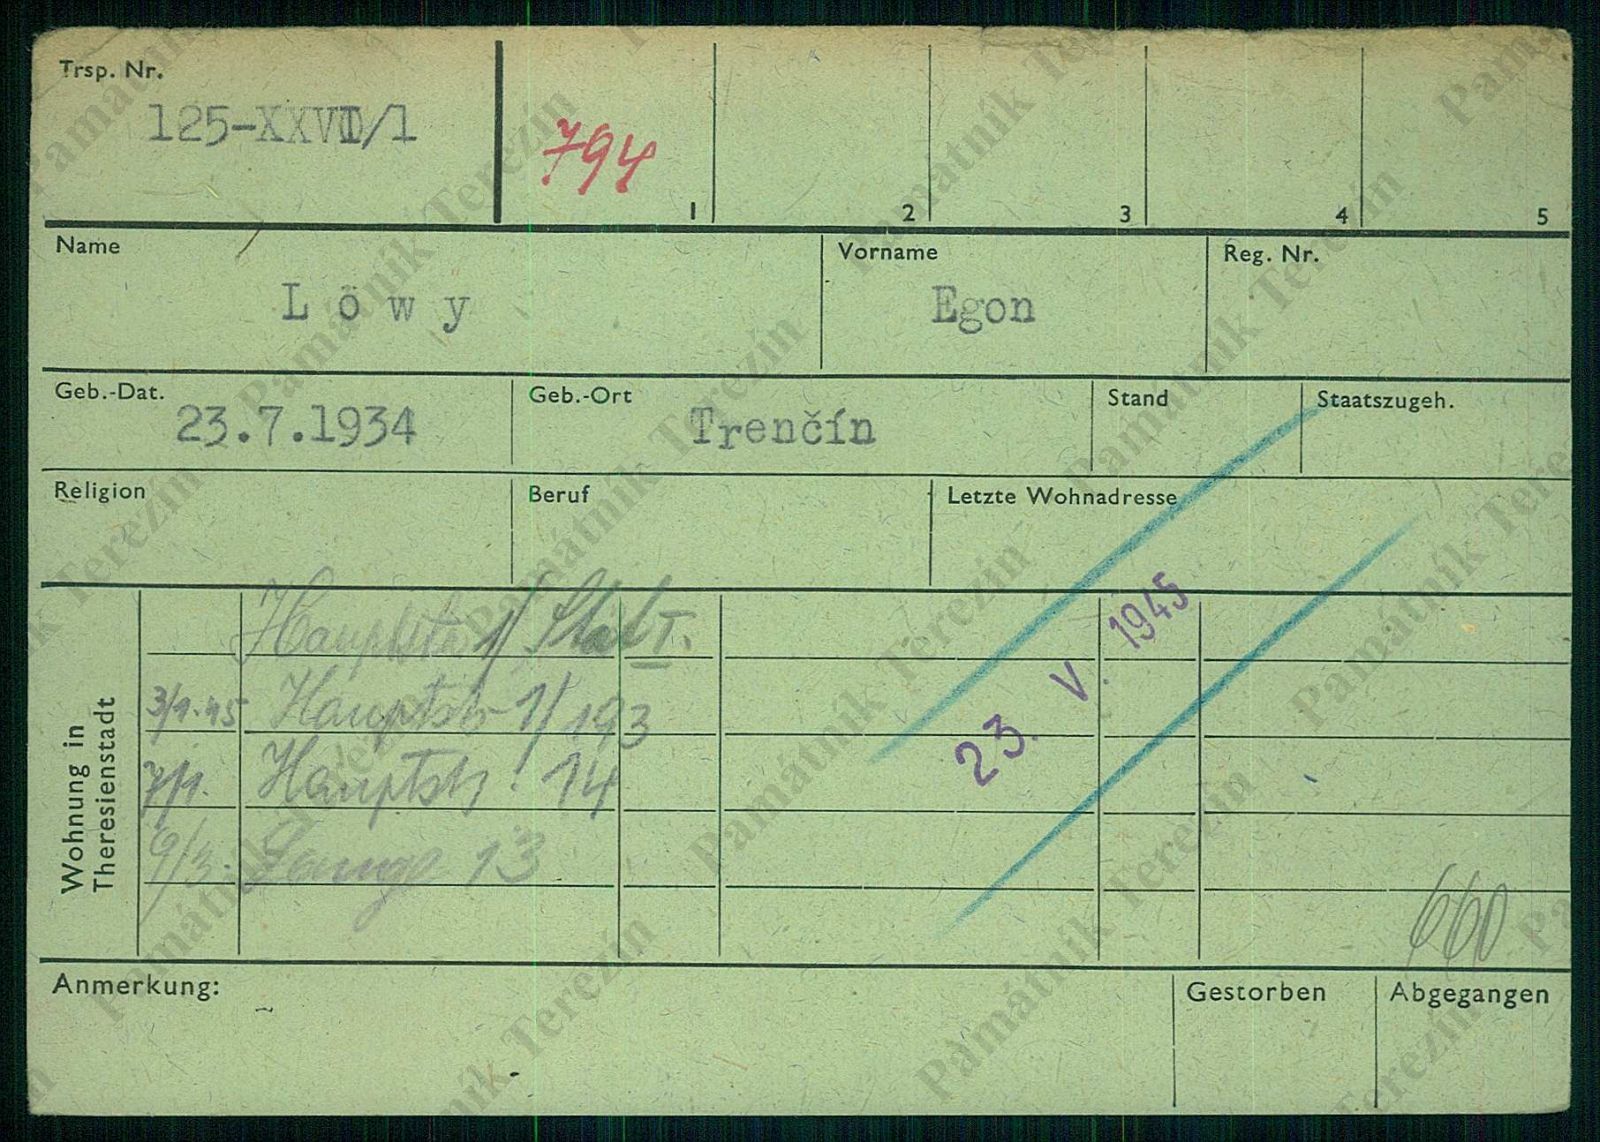 Trsp. Nr.
125-XXVI/1
794
1 2 3 4 5
Name
Löwy
Vorname
Egon
Reg. Nr.
Geb.-Dat.
23.7.1934
Geb.-Ort
Trenčín
Stand
Staatszugeh.
Religion
Beruf
Letzte Wohnadresse
Wohnung in
Theresienstadt
Hauptstr 1/ I.
3/1.45 Hauptstr 1/193
7/1. Hauptstr. 14
9/3. Lange 13
23. V. 1945
660
Anmerkung:
Gestorben
Abgegangen
Památník Terezín